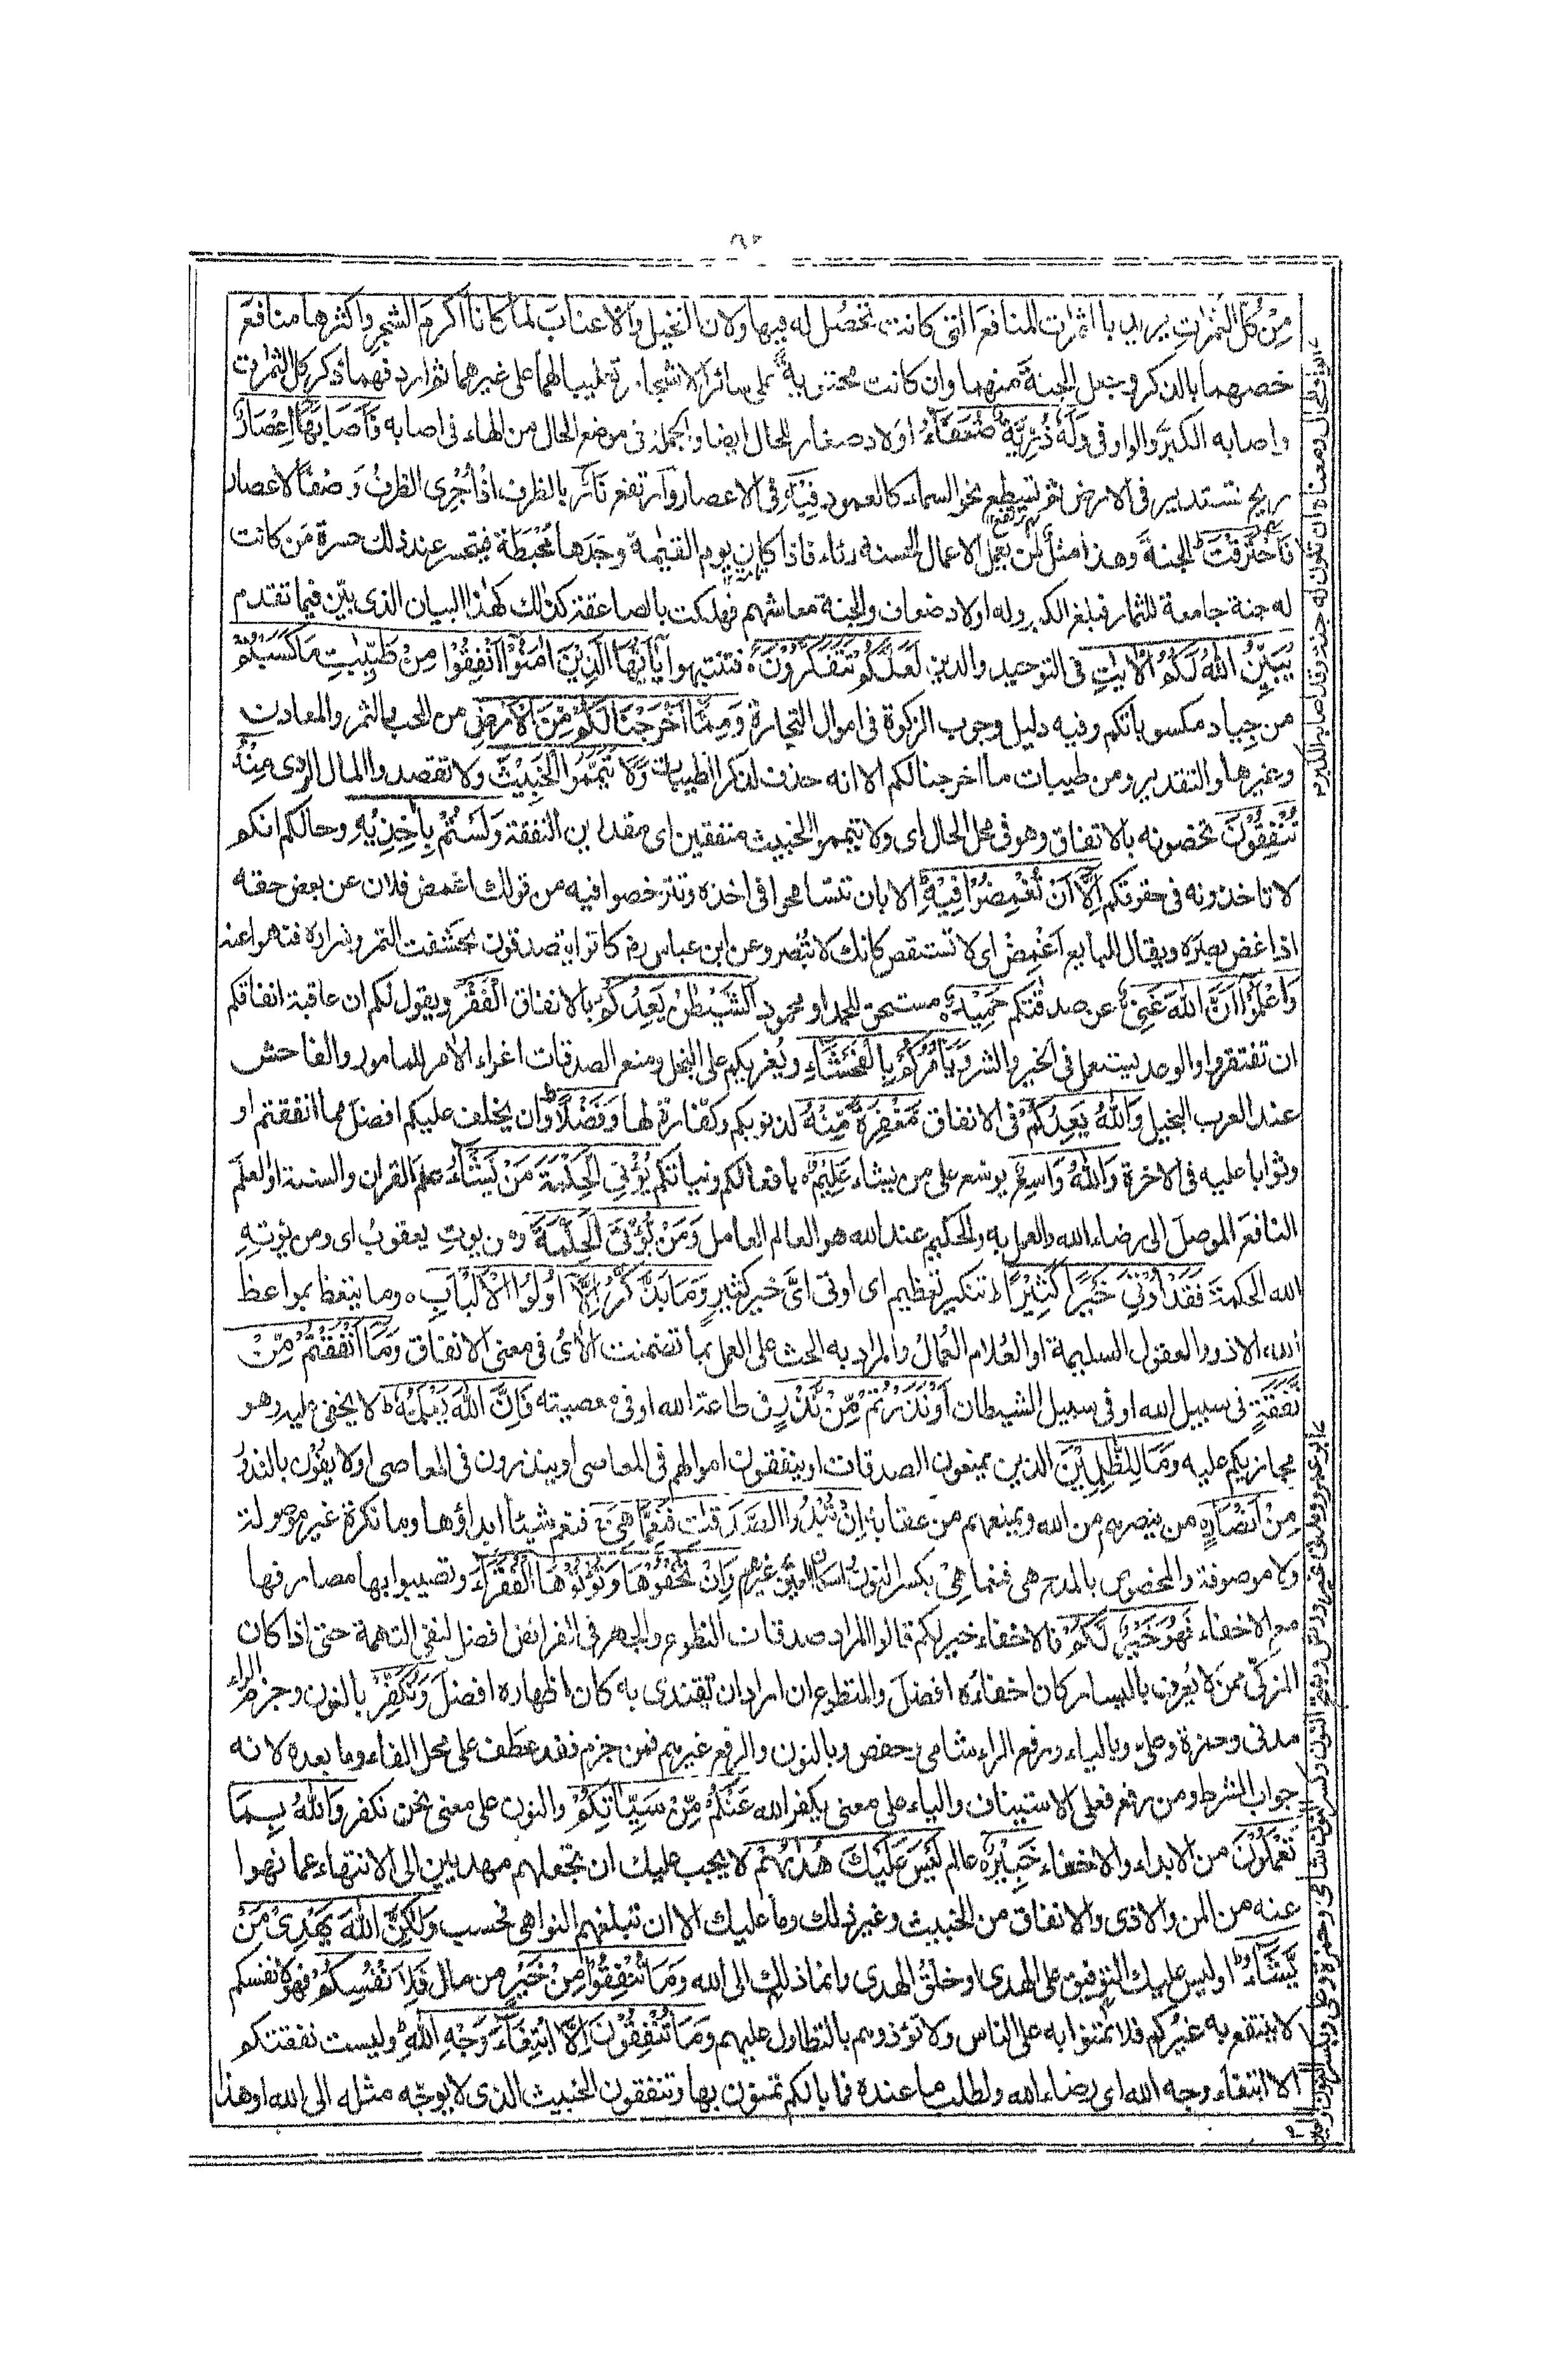 من كل الثمرات يريد با الثمرات المنافع التى كانت تحصل له فيها ولان النخيل والاعناب لما كانا اكرم الشجر واكثرها منافع
خصهما بالذكر وجعل الجنة منهما وان كانت محتوية على سائر الاشجار تغليبا لهما على غيرهما ثم اردفهما ذكر كل الثمرات
واصابه الكبر والواو فى وَلَهٗ ذُرِّيَّةٌ ضُعَفَآءُ اولاد صغار للحال ايضا والجملة فى موضع الحال من الهاء فى اصابه فَاَصَابَهَا اِعْصَارٌ
ريح تستدير فى الارض ثم تسطع نحو السماء كالعمود فِيْهِ فى الاعصار وارتفع نَارٌ بالظرف اذا جرى الظرف وصفا لاعصار
فَاحْتَرَقَتْ الجنة وهذا مثل لمن يعمل الاعمال الحسنة رياء فاذا كان يوم القيمة وجدها محبطة فيتحسر عند ذلك حسرة من كانت
له جنة جامعة للثمار فبلغ الكبر وله اولاد ضعاف والجنة معاشهم فهلكت بالصاعقة كذلك كهذا البيان الذى بيّن فيما تقدم
يُبَيِّنُ اللّٰهُ لَكُمُ الْاٰيٰتِ فى التوحيد والدين لَعَلَّكُمْ تَتَفَكَّرُوْنَ فتنتبهوا يٰٓاَيُّهَا الَّذِيْنَ اٰمَنُوْٓا اَنْفِقُوْا مِنْ طَيِّبٰتِ مَا كَسَبْتُمْ
من جياد مكسوباتكم وفيه دليل وجوب الزكوة فى اموال التجارة وَمِمَّآ اَخْرَجْنَا لَكُمْ مِّنَ الْاَرْضِ من الحب والثمر والمعادن
وغيرها والتقدير ومن طيبات ما اخرجنا لكم الا انه حذف لذكر الطيبات وَلَا تَيَمَّمُوا الْخَبِيْثَ ولا تقصدوا المال الردى مِنْهُ
تُنْفِقُوْنَ تخصونه بالانفاق وهو فى محل الحال اى ولا تيمموا الخبيث منفقين اى مقدرين النفقة وَلَسْتُمْ بِاٰخِذِيْهِ وحالكم انكم
لا تاخذونه فى حقوقكم اِلَّآ اَنْ تُغْمِضُوْا فِيْهِ الا بان تتسامحوا فى اخذه وتترخصوا فيه من قولك اغمض فلان عن بعض حقه
اذا غض بصره ويقال للبايع اغمض اى لا تستقص كانك لا تبصر وعن ابن عباس رض كانوا يتصدقون بحشف التمر وشراره فنهوا عنه
وَاعْلَمُوْٓا اَنَّ اللّٰهَ غَنِيٌّ عن صدقتكم حَمِيْدٌ مستحق للحمد او محمود اَلشَّيْطٰنُ يَعِدُكُمُ بالانفاق الْفَقْرَ ويقول لكم ان عاقبة انفاقكم
ان تفتقروا والوعد يستعمل فى الخير والشر وَيَاْمُرُكُمْ بِالْفَحْشَآءِ ويغريكم على البخل ومنع الصدقات اغراء الامر للمامور والفاحش
عند العرب البخيل وَاللّٰهُ يَعِدُكُمْ فى الانفاق مَّغْفِرَةً مِّنْهُ لذنوبكم وكفارة لها وَفَضْلًا وان يخلف عليكم افضل مما انفقتم او
وثوابا عليه فى الاخرة وَاللّٰهُ وَاسِعٌ يوسع على من يشاء عَلِيْمٌ بافعالكم ونياتكم يُّؤْتِي الْحِكْمَةَ مَنْ يَّشَآءُ علم القران والسنة او العلم
النافع الموصل الى رضاء الله والعمل به والحكيم عند الله هو العالم العامل وَمَنْ يُّؤْتَ الْحِكْمَةَ ومن يوت يعقوب اى ومن يؤته
الله الحكمة فَقَدْ اُوْتِيَ خَيْرًا كَثِيْرًا تنكير تعظيم اى اوتى اىّ خير كثير وَمَا يَذَّكَّرُ اِلَّآ اُولُوا الْاَلْبَابِ وما يتعظ بمواعظ
الله الا ذوو العقول السليمة او العلام العمال والمراد به الحث على العمل بما تضمنت الآى فى معنى الانفاق وَمَآ اَنْفَقْتُمْ مِّنْ
نَّفَقَةٍ فى سبيل الله او فى سبيل الشيطان اَوْ نَذَرْتُمْ مِّنْ نَّذْرٍ فى طاعة الله او فى معصيته فَاِنَّ اللّٰهَ يَعْلَمُهٗ لا يخفى عليه وهو
مجازيكم عليه وَمَا لِلظّٰلِمِيْنَ الذين يمنعون الصدقات او ينفقون اموالهم فى المعاصى او ينذرون فى المعاصى او لا يفون بالنذر
مِنْ اَنْصَارٍ من ينصرهم من الله ويمنعهم من عقابه اِنْ تُبْدُوا الصَّدَقٰتِ فَنِعِمَّا هِيَ فنعم شيئا ابداؤها وما نكرة غير موصولة
ولا موصوفة والمخصوص بالمدح هى فنعما هى بكسر النون واسكان العين غيرهم وَاِنْ تُخْفُوْهَا وَتُؤْتُوْهَا الْفُقَرَآءَ وتصيبوا بها مصارفها
مع الاخفاء فَهُوَ خَيْرٌ لَّكُمْ فالاخفاء خير لكم قالوا المراد صدقات التطوع والجهر فى الفرائض افضل لنفى التهمة حتى اذا كان
المزكى ممن لا يعرف باليسار كان اخفاءه افضل والمتطوع ان اراد ان يقتدى به كان اظهاره افضل وَنُكَفِّرْ بالنون وجزم الراء
مدنى وحمزة وعلى وبالياء ورفع الراء شامى وحفص وبالنون والرفع غيرهم فمن جزم فقد عطف على محل الفاء وما بعده لانه
جواب الشرط ومن رفع فعلى الاستيناف والياء على معنى يكفر الله عَنْكُمْ مِّنْ سَيِّاٰتِكُمْ والنون على معنى نحن نكفر وَاللّٰهُ بِمَا
تَعْمَلُوْنَ من الابداء والاخفاء خَبِيْرٌ عالم لَيْسَ عَلَيْكَ هُدٰىهُمْ لا يجب عليك ان تجعلهم مهديين الى الانتهاء عما نهوا
عنه من المن والاذى والانفاق من الخبيث وغير ذلك وما عليك الا ان تبلغهم النواهى فحسب وَلٰكِنَّ اللّٰهَ يَهْدِيْ مَنْ
يَّشَآءُ او ليس عليك التوفيق على الهدى او خلق الهدى وانما ذلك الى الله وَمَا تُنْفِقُوْا مِنْ خَيْرٍ من مال فَلِاَنْفُسِكُمْ فهو لانفسكم
لا ينتفع به غيركم فلا تمنوا به على الناس ولا تؤذوهم بالتطاول عليهم وَمَا تُنْفِقُوْنَ اِلَّا ابْتِغَآءَ وَجْهِ اللّٰهِ وليست نفقتكم
الا ابتغاء وجه الله اى رضاء الله ولطلب ما عنده فما بالكم تمنون بها وتنفقون الخبيث الذى لا يوجّه مثله الى الله او هذا